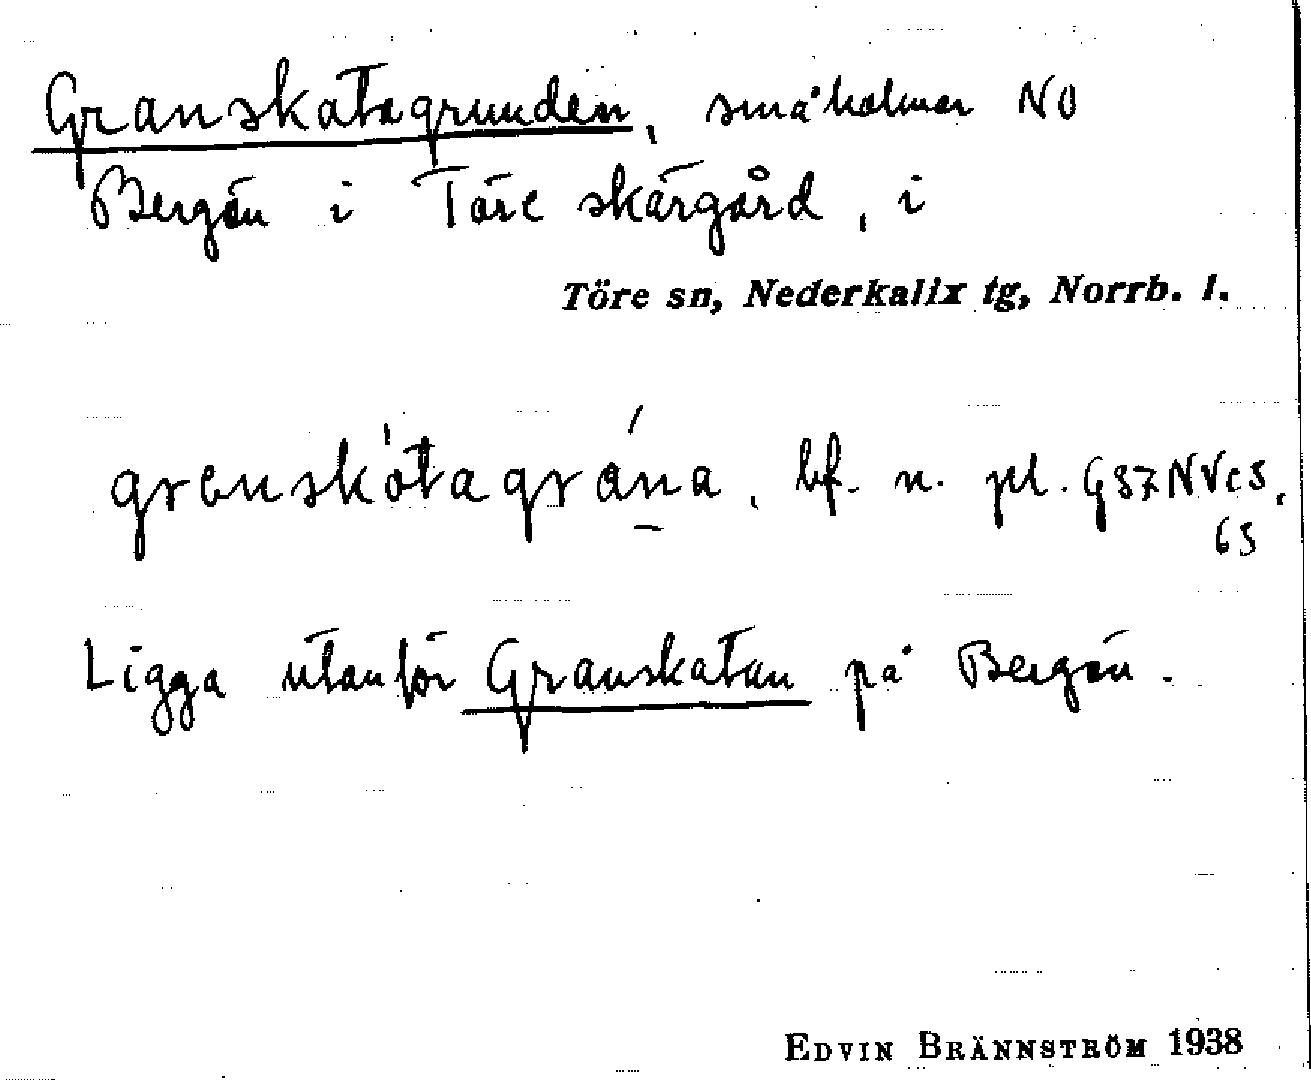 Granskatagrunden, småholmar NO
Bergön i Töre skärgård, i
Töre sn, Nederkalix tg, Norrb. l.
grenskåtagråna, bf. n. pl. G37NVc3,
63
Ligga utanför Granskatan på Bergön.
EDVIN BRÄNNSTRÖM 1938